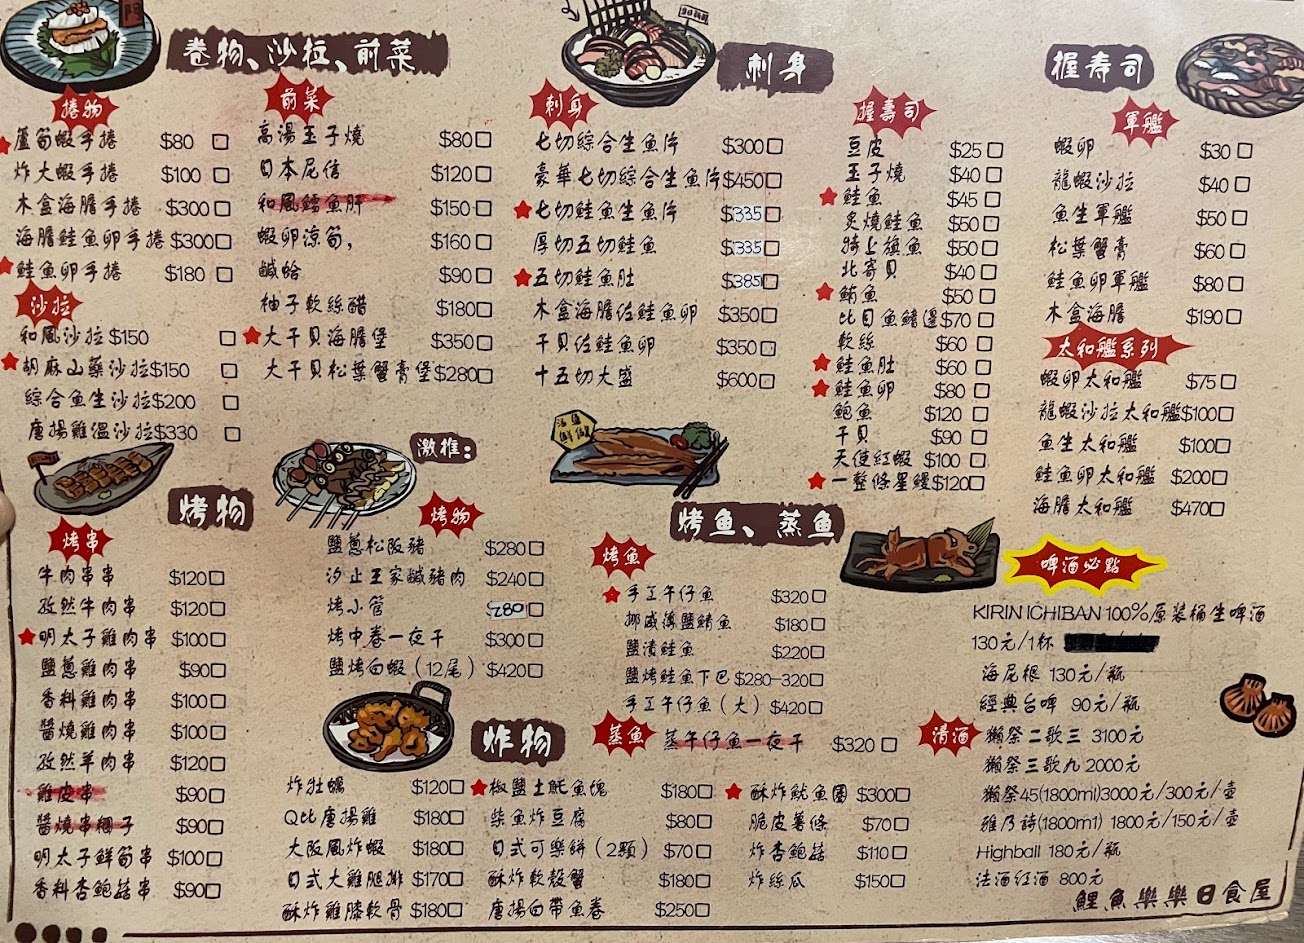 卷物、沙拉、前菜
捲物
蘆筍蝦手捲 $80
炸大蝦手捲 $100
木盒海膽手捲 $300
海膽鮭魚卵手捲 $300
鮭魚卵手捲 $180
沙拉
和風沙拉 $150
胡麻山藥沙拉 $150
綜合魚生沙拉 $200
唐揚雞溫沙拉 $330
前菜
高湯玉子燒 $80
日本尼信 $120
和風鱈魚肝 $150
蝦卵涼筍, $160
鹹蛤 $90
柚子軟絲醋 $180
大干貝海膽堡 $350
大干貝松葉蟹膏堡 $280
刺身
刺身
七切綜合生魚片 $300
豪華七切綜合生魚片 $450
七切鮭魚生魚片 $335
厚切五切鮭魚 $335
五切鮭魚肚 $385
木盒海膽佐鮭魚卵 $350
干貝佐鮭魚卵 $350
十五切大盛 $600
握寿司
握壽司
豆皮 $25
玉子燒 $40
鮭魚 $45
炙燒鮭魚 $50
騎士旗魚 $50
北寄貝 $40
鮪魚 $50
比目魚鰭邊 $70
軟絲 $60
鮭魚肚 $60
鮭魚卵 $80
鮑魚 $120
干貝 $90
天使紅蝦 $100
一整條星鰻 $120
軍艦
蝦卵 $30
龍蝦沙拉 $40
魚生軍艦 $50
松葉蟹膏 $60
鮭魚卵軍艦 $80
木盒海膽 $190
太和艦系列
蝦卵太和艦 $75
龍蝦沙拉太和艦 $100
魚生太和艦 $100
鮭魚卵太和艦 $200
海膽太和艦 $470
烤物
烤串
牛肉串串 $120
孜然牛肉串 $120
明太子雞肉串 $100
鹽蔥雞肉串 $90
香料雞肉串 $100
醬燒雞肉串 $100
孜然羊肉串 $120
雞皮串 $90
醬燒串糰子 $90
明太子鮮筍串 $100
香料杏鮑菇串 $90
激推:
烤物
鹽蔥松阪豬 $280
汐止王家鹹豬肉 $240
烤小管 280
烤中卷一夜干 $300
鹽烤白蝦(12尾) $420
烤魚、蒸魚
烤魚
手工午仔魚 $320
挪威薄鹽鯖魚 $180
鹽漬鮭魚 $220
鹽烤鮭魚下巴 $280-320
手工午仔魚(大) $420
蒸魚
蒸午仔魚一夜干 $320
炸物
炸牡蠣 $120
Q比唐揚雞 $180
大阪風炸蝦 $180
日式大雞腿排 $170
酥炸雞膝軟骨 $180
椒鹽土魠魚塊 $180
柴魚炸豆腐 $80
日式可樂餅(2顆) $70
酥炸軟殼蟹 $180
唐揚白帶魚卷 $250
酥炸魷魚圈 $300
脆皮薯條 $70
炸杏鮑菇 $110
炸絲瓜 $150
啤酒必點
KIRIN ICHIBAN 100%原裝桶生啤酒
130元/1杯
海尼根 130元/瓶
經典台啤 90元/瓶
清酒
獺祭二歌三 3100元
獺祭三歌九 2000元
獺祭45(1800ml)3000元/300元/壺
雅乃詩(1800m1) 1800元/150元/壺
Highball 180元/瓶
法酒红酒 800元
鯉魚樂樂日食屋